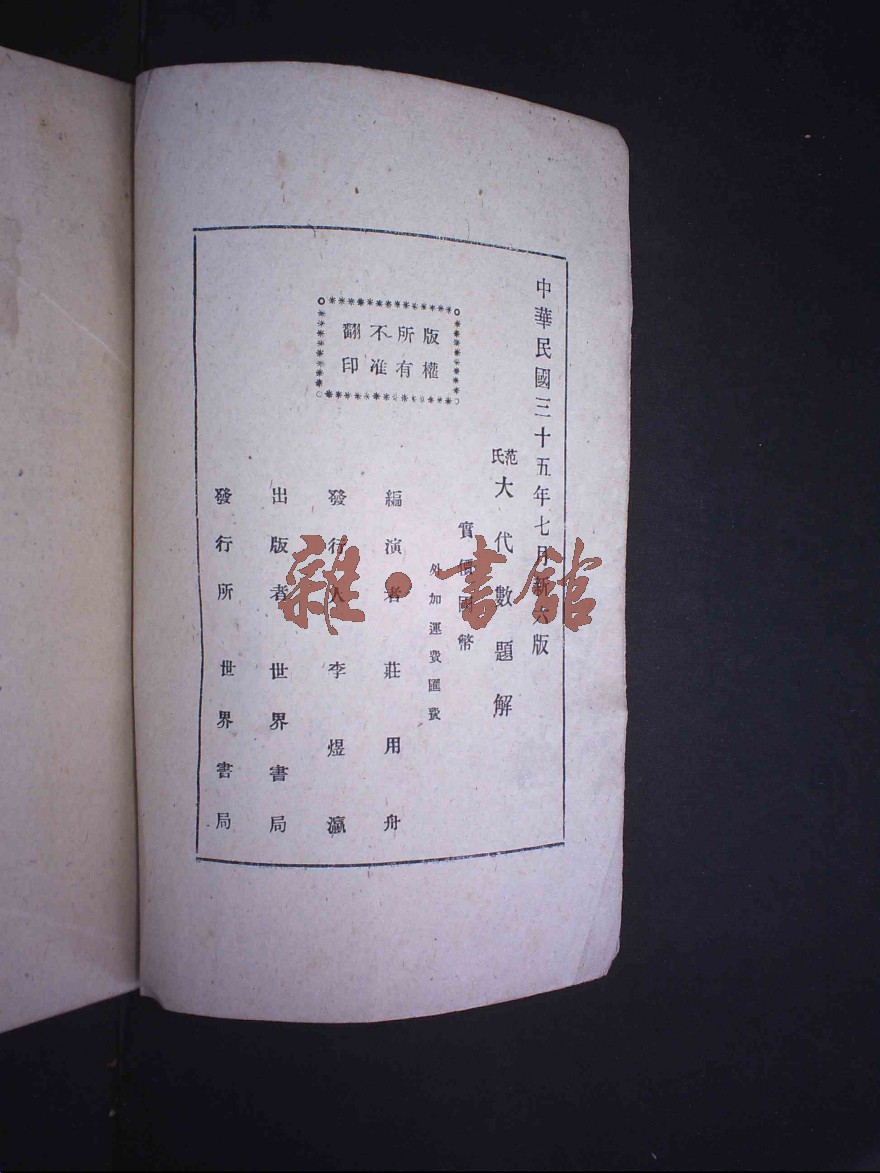 中華民國三十五年七月新六版
范氏大代數題解
實價國幣
外加運費匯費
版權
所有
不准
翻印
編演者 莊用舟
發行人 李煜瀛
出版者 世界書局
發行所 世界書局
雜·書館